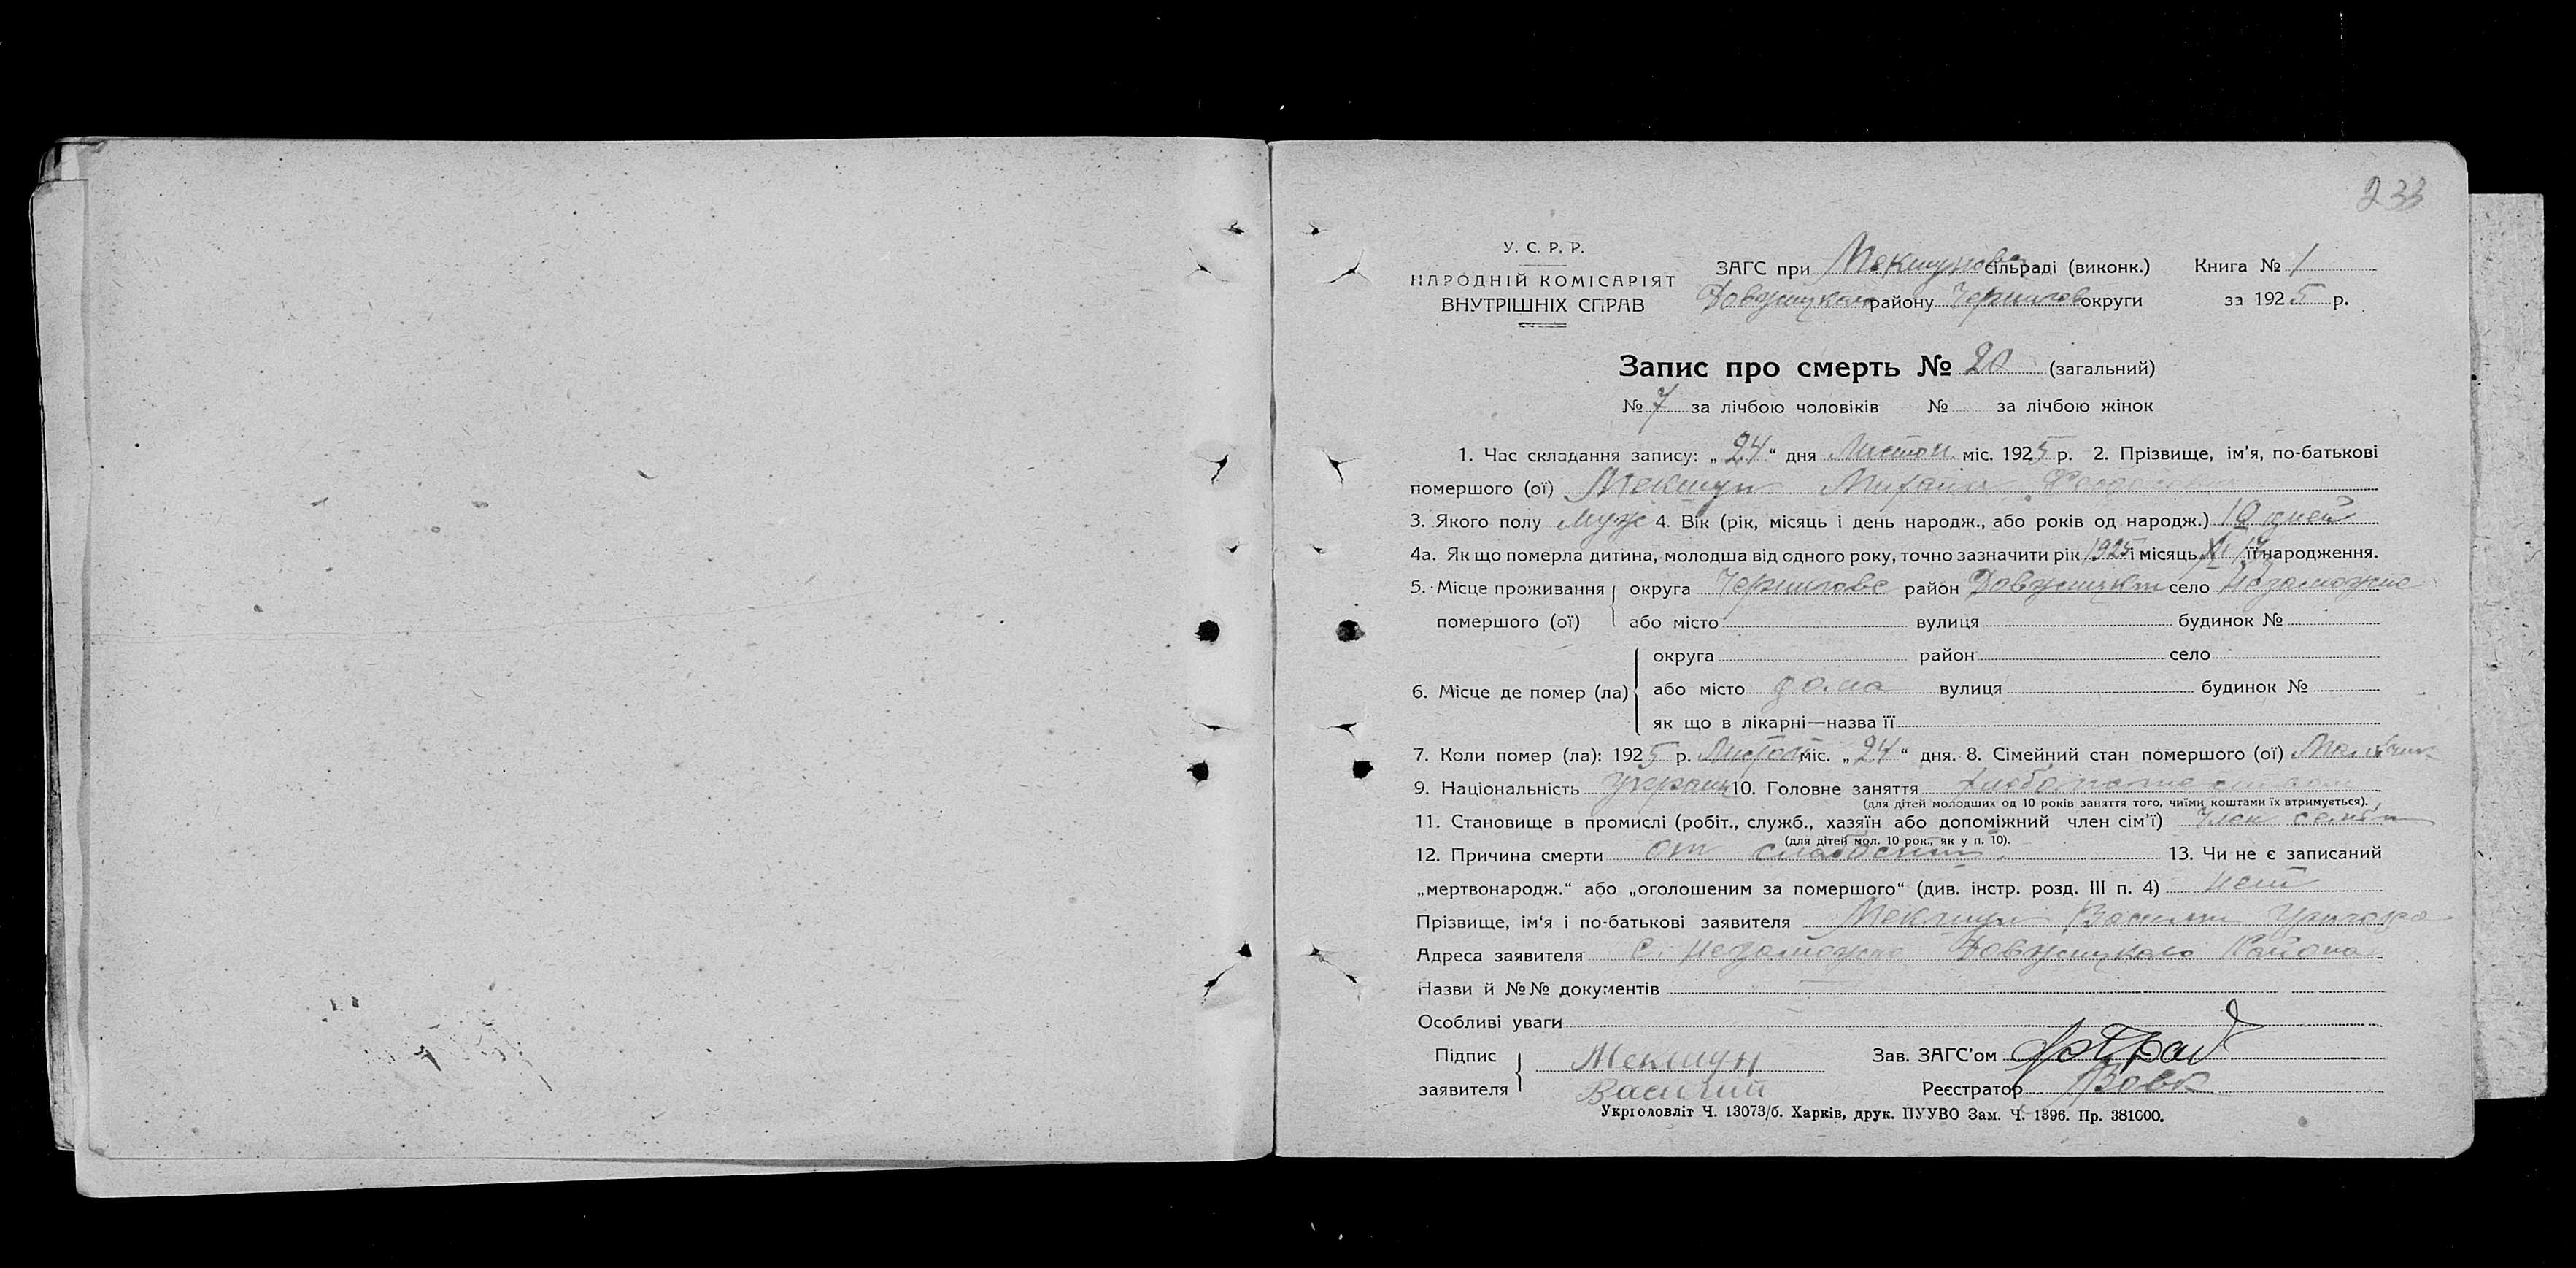 233
У. С. Р. Р.
НАРОДНІЙ КОМІСАРІЯТ
ВНУТРІШНІХ СПРАВ
ЗАГС при Мекшунов сільраді (виконк.) Книга № 1
району Чернигов округи за 1925 р.
Запис про смерть № 20 (загальний)
№ 7 за лічбою чоловіків № за лічбою жінок
1. Час складання запису: „24“ дня Листоп міс. 1925 р. 2. Прізвище, ім'я, по-батькові
помершого (ої) Мекшун Михаил
3. Якого полу муж 4. Вік (рік, місяць і день народж., або років од народж.) 10 дней
4а. Як що померла дитина, молодша від одного року, точно зазначити рік 1925 і місяць XI її народження.
5. Місце проживання округа Чернигове район село Незаможне
помершого (ої) або місто вулиця будинок №
округа район село
6. Місце де помер (ла) або місто дома вулиця будинок №
як що в лікарні—назва її
7. Коли помер (ла): 1925 р. міс. „24“ дня. 8. Сімейний стан помершого (ої)
9. Національність Украин 10. Головне заняття
(для дітей молодших од 10 років заняття того, чиїми коштами їх втримується).
11. Становище в промислі (робіт., служб., хазяїн або допоміжний член сім'ї) Член семьи
(для дітей мол. 10 рок., як у п. 10).
12. Причина смерти от слабости. 13. Чи не є записаний
„мертвонародж.“ або „оголошеним за помершого“ (див. інстр. розд. III п. 4) нет
Прізвище, ім'я і по-батькові заявителя Мекшун
Адреса заявителя с. Незаможне Района
Назви й №№ документів
Особливі уваги
Підпис Мекшун Зав. ЗАГС'ом
заявителя Василий Реєстратор Вовк
Укрголовліт Ч. 13073/б. Харків, друк. ПУУВО Зам. Ч. 1396. Пр. 381000.